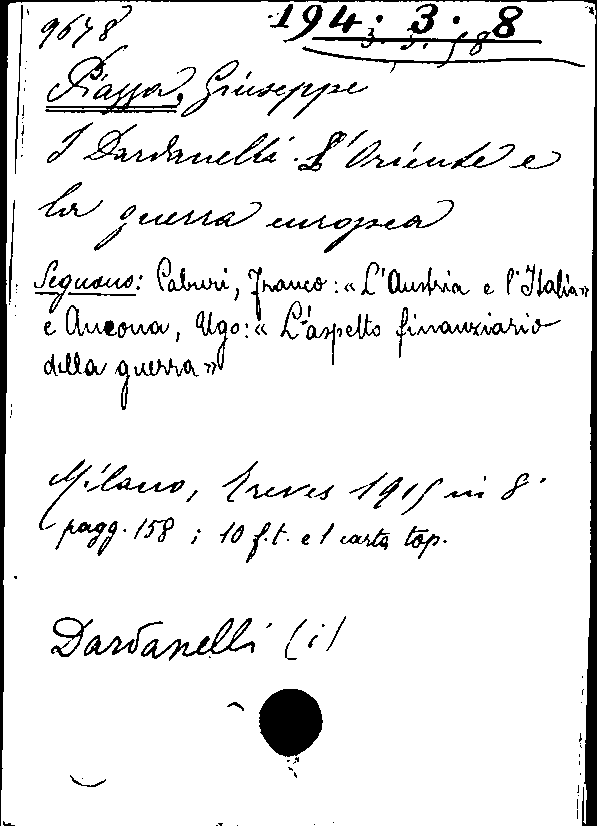 9678
194. 3. 8
Piazza, Giuseppe
I Dardanelli. L'Oriente e
la guerra europea
Seguono: Caburi, Franco: «L'Austria e l'Italia»
e Ancona, Ugo: «L'aspetto finanziario
della guerra»
Milano, Treves 1915 in 8°
pagg. 158 ; 10 f.t. e 1 carta top.
Dardanelli (i)